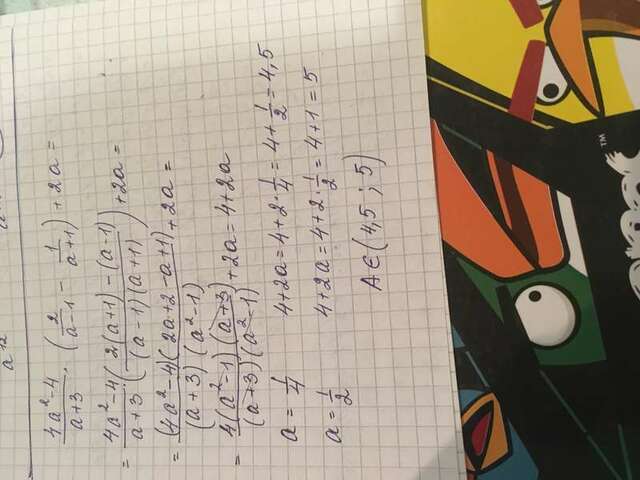 a¹²
(4a²-4)/(a+3) · (2/(a-1) - 1/(a+1)) + 2a =
= (4a²-4)/(a+3) · ((2(a+1) - (a-1))/((a-1)(a+1))) + 2a =
= ((4a²-4)(2a+2-a+1))/((a+3)(a²-1)) + 2a =
= (4(a²-1)(a+3))/((a+3)(a²-1)) + 2a = 4+2a
a = 1/4 4+2a = 4+2·1/4 = 4+1/2 = 4,5
a = 1/2 4+2a = 4+2·1/2 = 4+1 = 5
A∈(4,5 ; 5)
TM